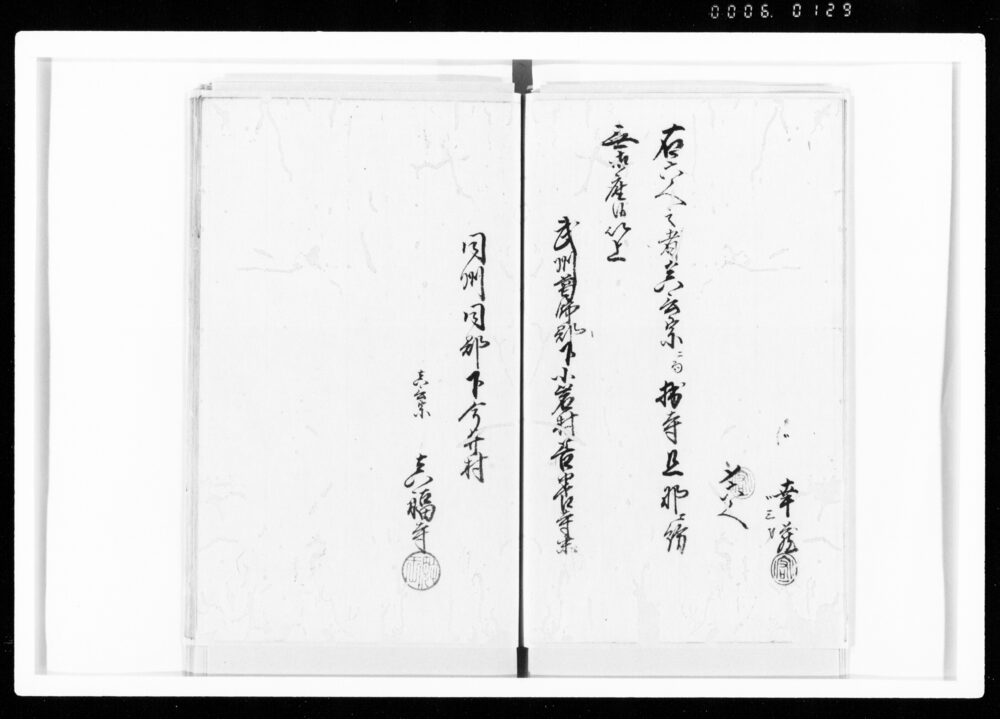 0006. 0129
幸蔵
〆六人
右六人之者真言宗ニ而拙寺旦那ニ紛
無御座候以上
武州葛飾郡下小岩村善養寺末
同州同郡下今井村
真言宗
真福寺